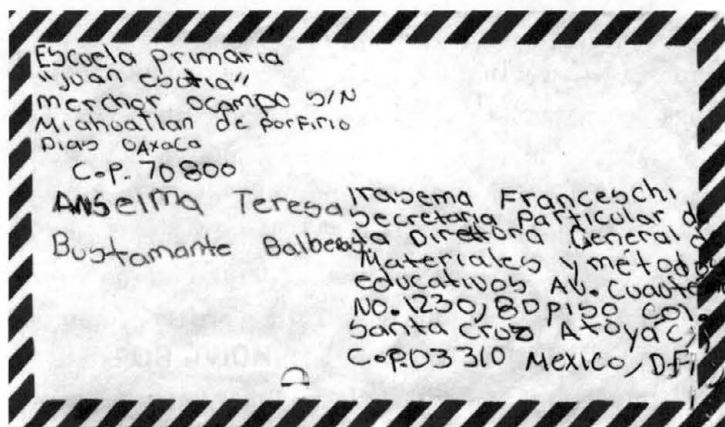 Escuela primaria
"Juan escutia"
merchor ocampo S/N
Miahuatlan de porfirio
Dias OAxaca
C.P. 70800
ANSelma Teresa
Bustamante
Irasema Franceschi
Secretaria Particular de
la Directora General d
Materiales y métodos
educativos AV. Cuautem
NO. 1230, 8D piso col.
Santa cruz Atoyac,
C.P.03310 Mexico, D.F.